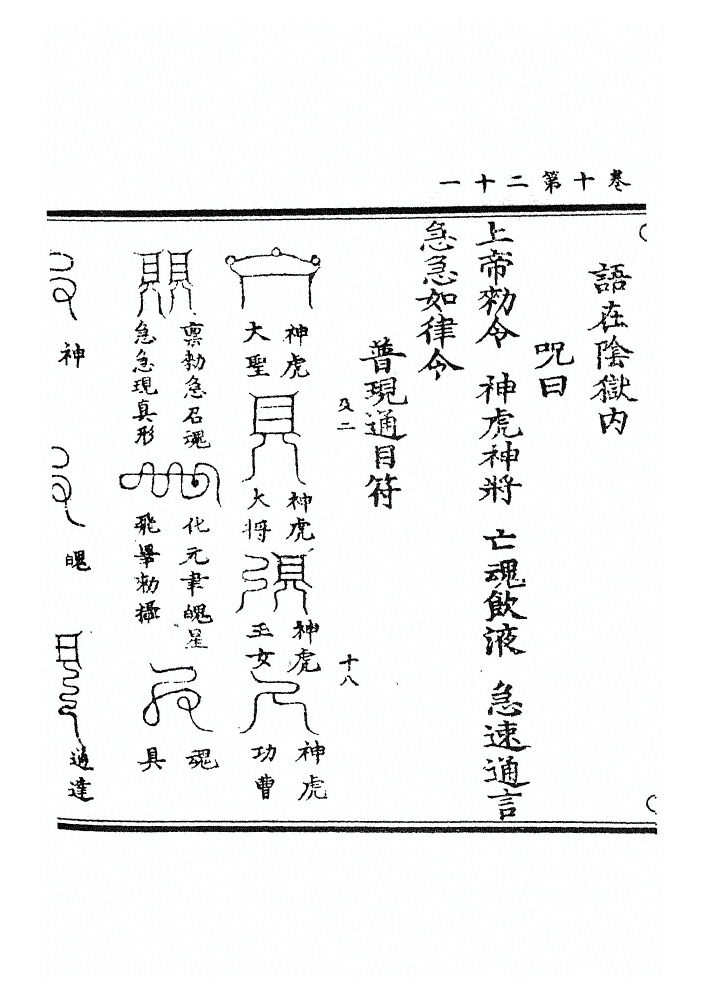 卷十第二十一
語在陰獄内
呪曰
上帝勑令 神虎神將 亡魂飲液 急速通言
急急如律令
普現通目符
及二 十八
神虎大聖
神虎大將
神虎玉女
神虎功曹
禀勑急召魂
急急現真形
化元聿魄星
飛畢勑攝
魂具
神
魄
通達